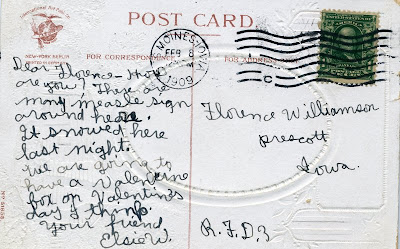 POST CARD.
International Art Pub. Co.
NEW-YORK BERLIN
FOR CORRESPONDENCE
FOR ADDRESS
MOINES, IOWA
FEB 8
1909
C
Dear Florence - How
are you? There are
many measle sign
around here.
It snowed here
last night.
We are going to
have a Valentine
box on Valentines
day I think.
Your friend
Elsie W.
Florence Williamson
Prescott
Iowa.
R.F.D. 3